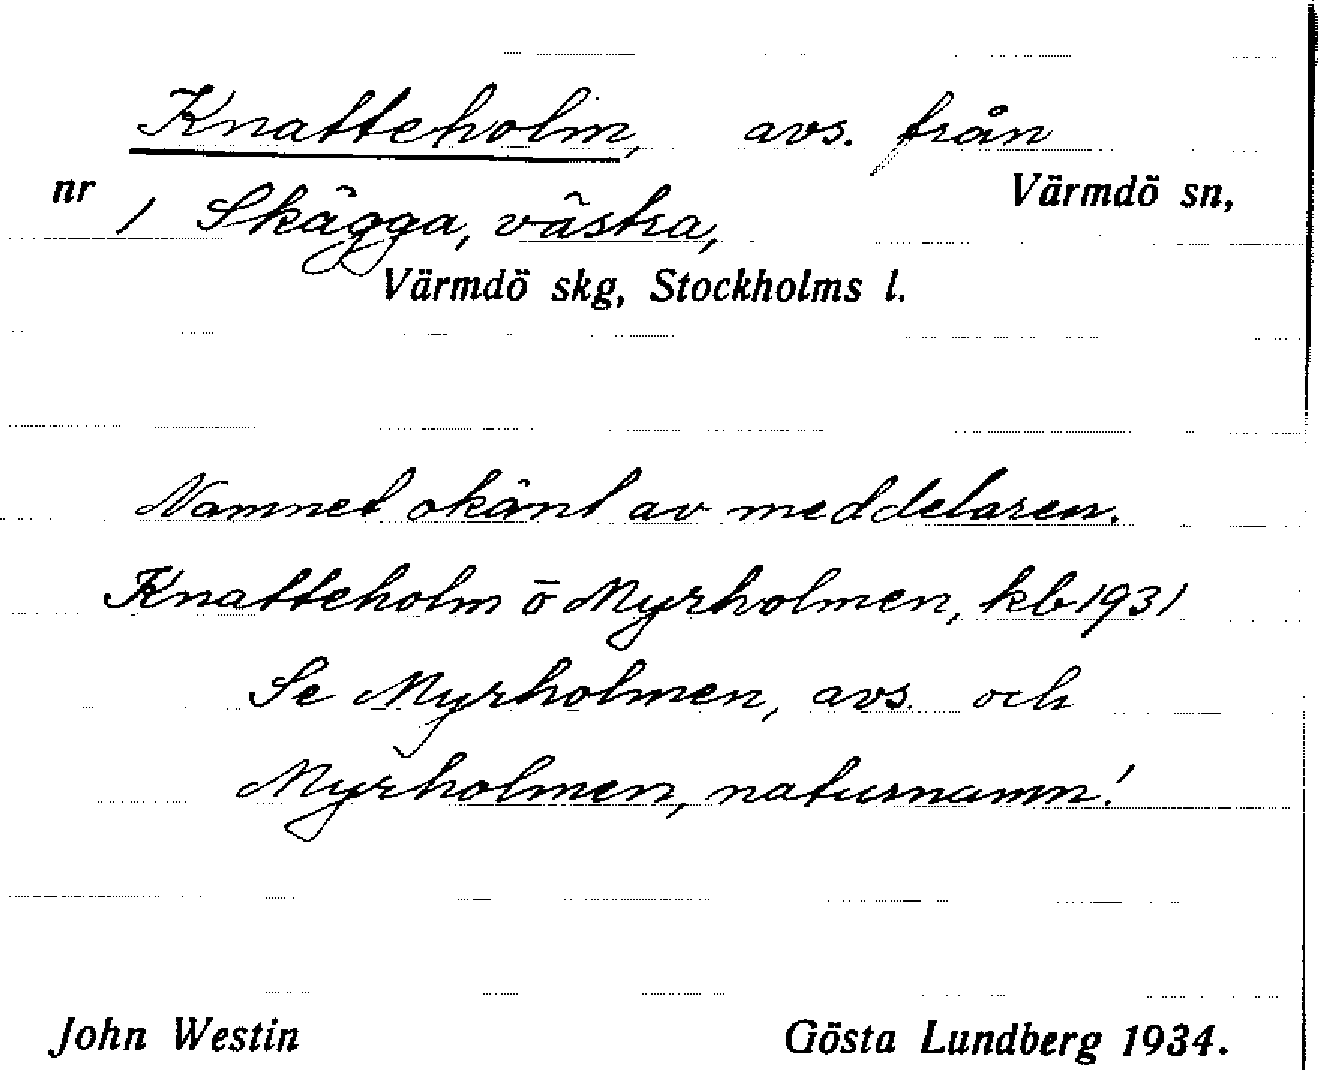 Knatteholm, avs. från
nr 1 Skägga, västra, Värmdö sn,
Värmdö skg, Stockholms l.
Namnet okänt av meddelaren.
Knatteholm ö Myrholmen, kb 1931
Se Myrholmen, avs. och
Myrholmen, naturnamn!
John Westin Gösta Lundberg 1934.